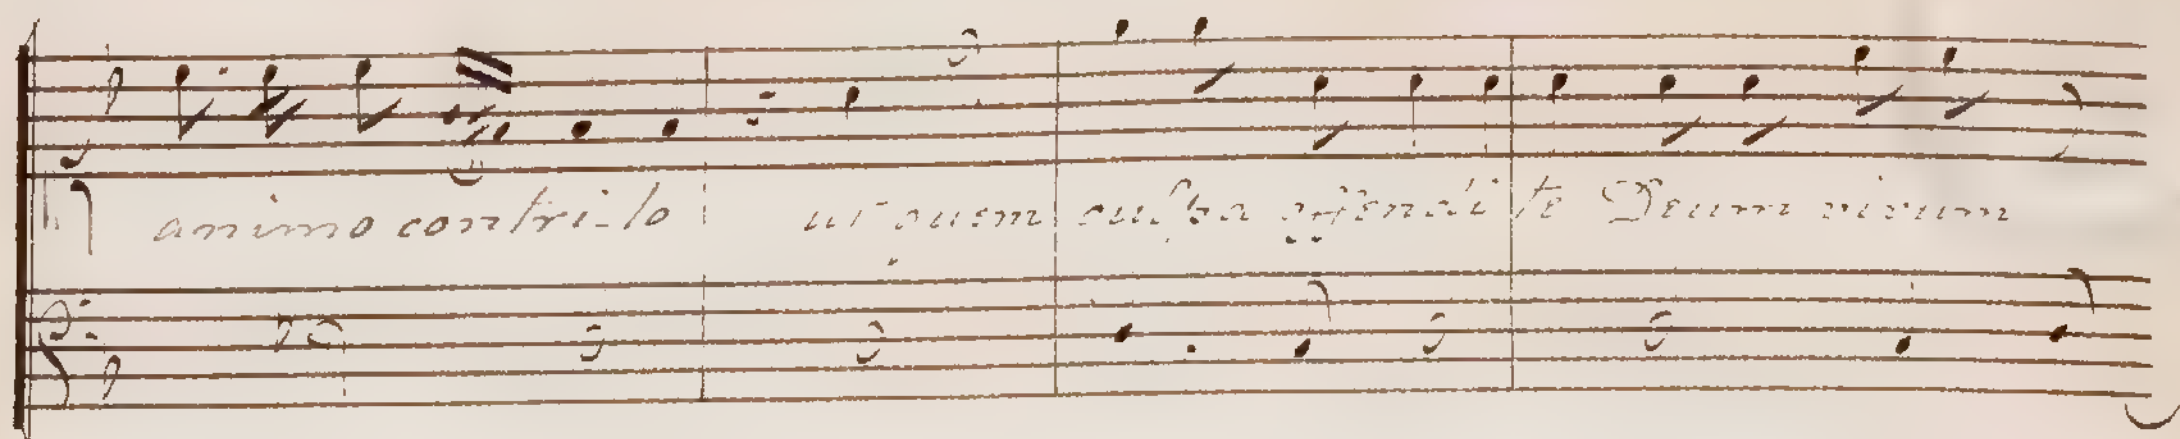 animo contri-to ut quem culpa offendi te Deum vivum